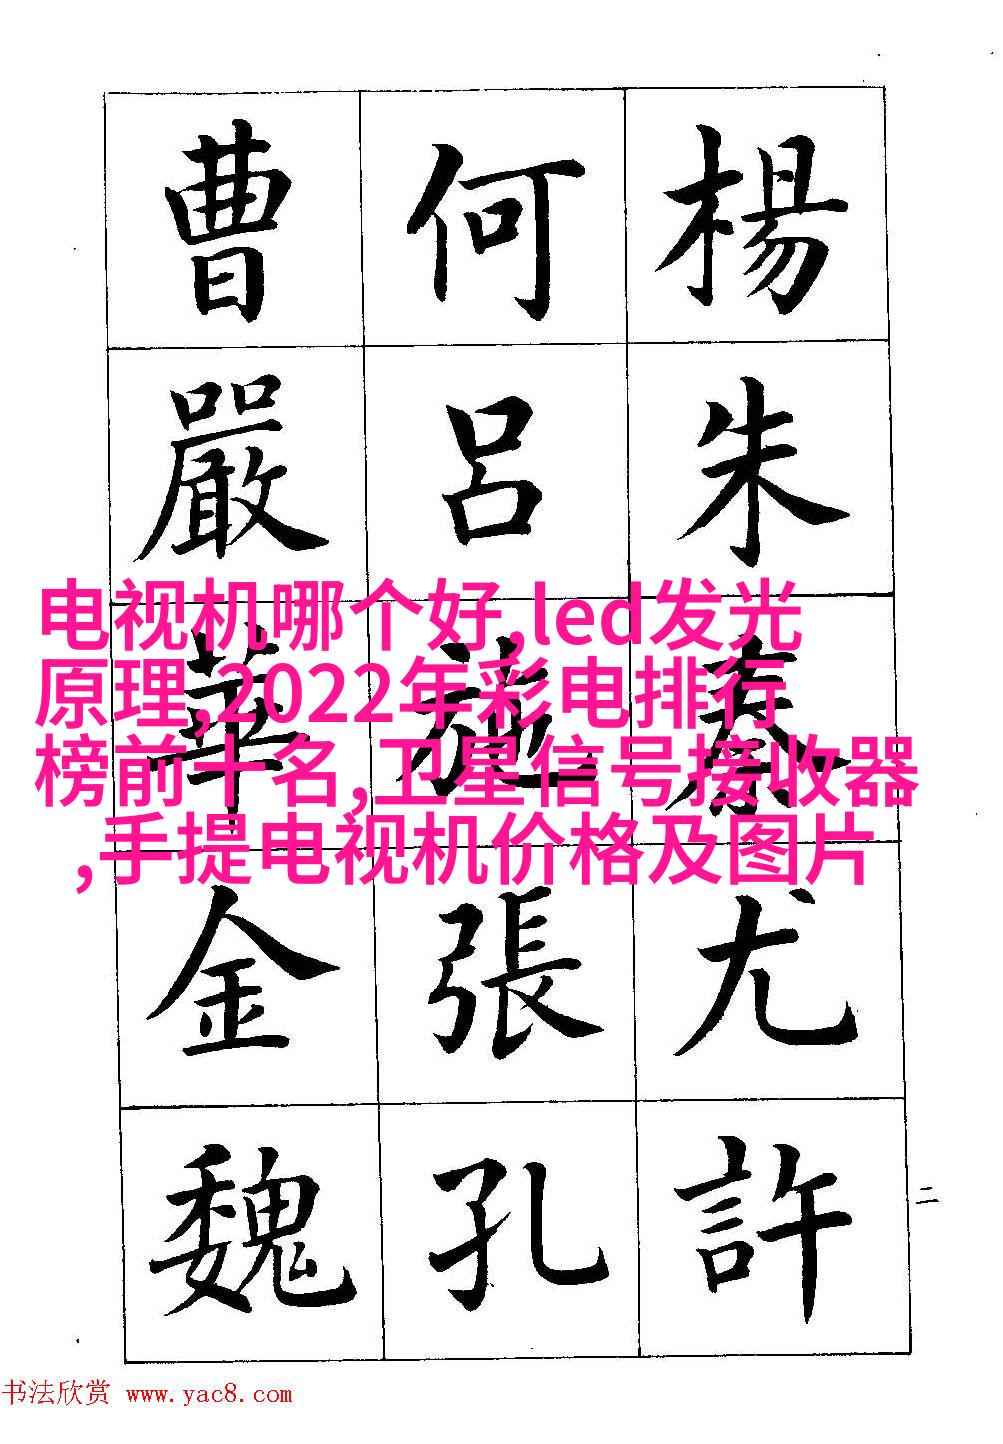 楊朱秦尤許
何吕施張孔
曹嚴華金魏
二
电视机哪个好,led发光
原理,2022年彩电排行
榜前十名,卫星信号接收器
,手提电视机价格及图片
书法欣赏 www.yac8.com